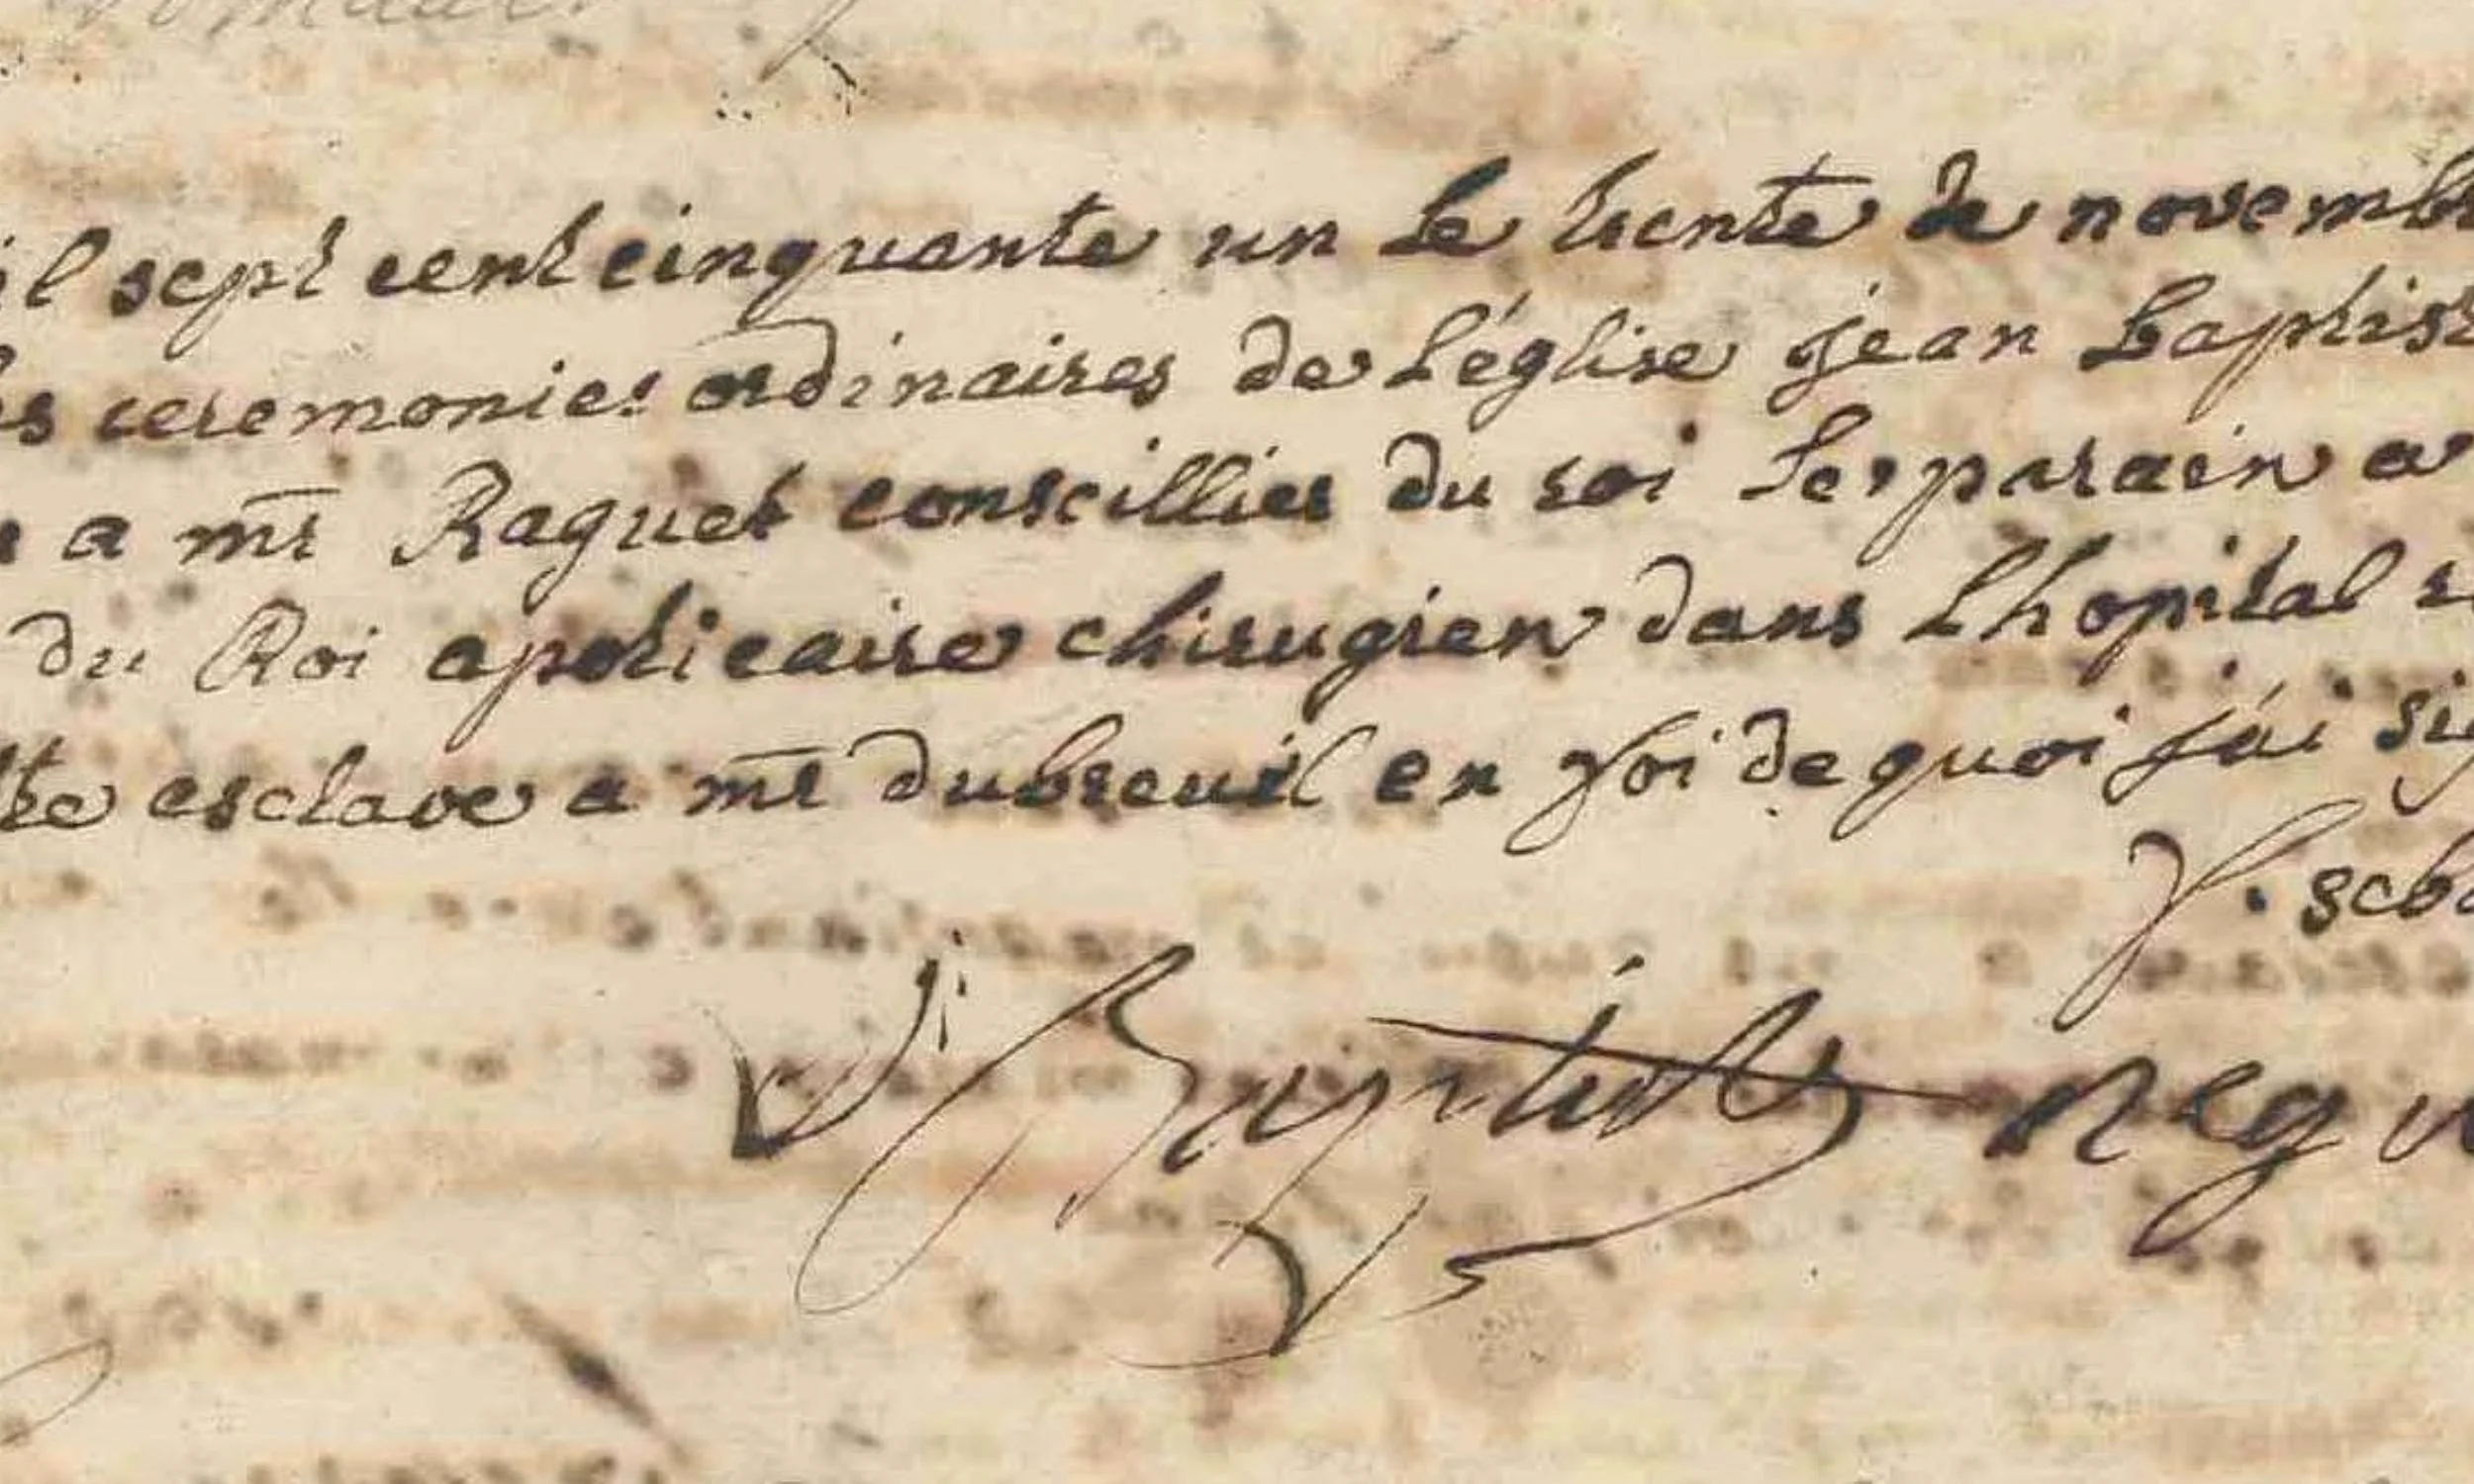 il sept cent cinquante un Le trente de novemb
es ceremonies ordinaires de L'église jean Baptist
a mr Raguet conseillier du roi Le parain a
du Roi apoticaire chirugien dans L'hopital r
tte esclave a mr dubreuil en foi de quoi j'ai sig
f. seba
j Baptiste neg